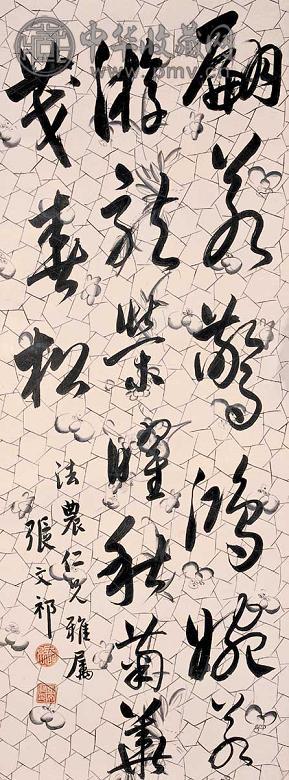 中华收藏网
翩若驚鴻婉若
游龍榮曜秋菊華
茂春松
法農仁兄雅屬
張文祁